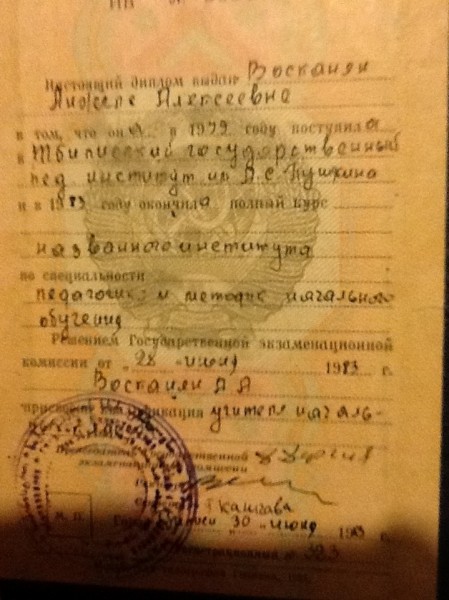 Настоящий диплом выдан Восканян
Анжеле Алексеевне
в том, что он а в 1979 году поступил а
в Тбилисский государственный
пед. институт им А.С. Пушкина
и в 1983 году окончил а полный курс
названного института
по специальности
педагогика и методика начального
обучения
Решением Государственной экзаменационной
комиссии от „28 „ июня 1983 г.
Восканян А А
присвоена квалификация учителя началь-
экзаменационной комиссии
Город 30 „ июня 1983 г.